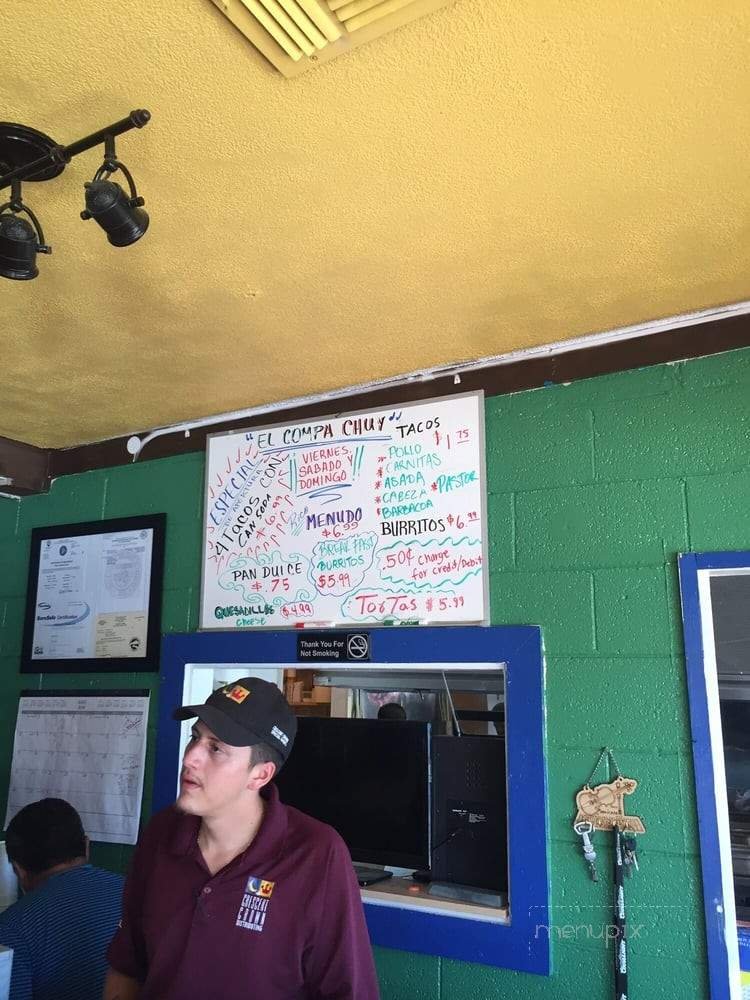 "EL COMPA CHUY"
ESPECIAL
DE APERTURA
4 TACOS CON
CAN SODA
$6.99
VIERNES,
SABADO Y
DOMINGO
Rico
MENUDO
$6.99
TACOS
$1.75
* POLLO
* CARNITAS
* ASADA
* CABEZA
* BARBACOA
* PASTOR
BURRITOS $6.99
BREAKFAST
BURRITOS
$5.99
.50¢ Charge
for Credit/Debit
PAN DULCE
$.75
QUESADILLAS $4.99
CHEESE
TorTas $5.99
Thank You For
Not Smoking
ServSafe Certification
CRESCENT
CROWN
DISTRIBUTING
menupix